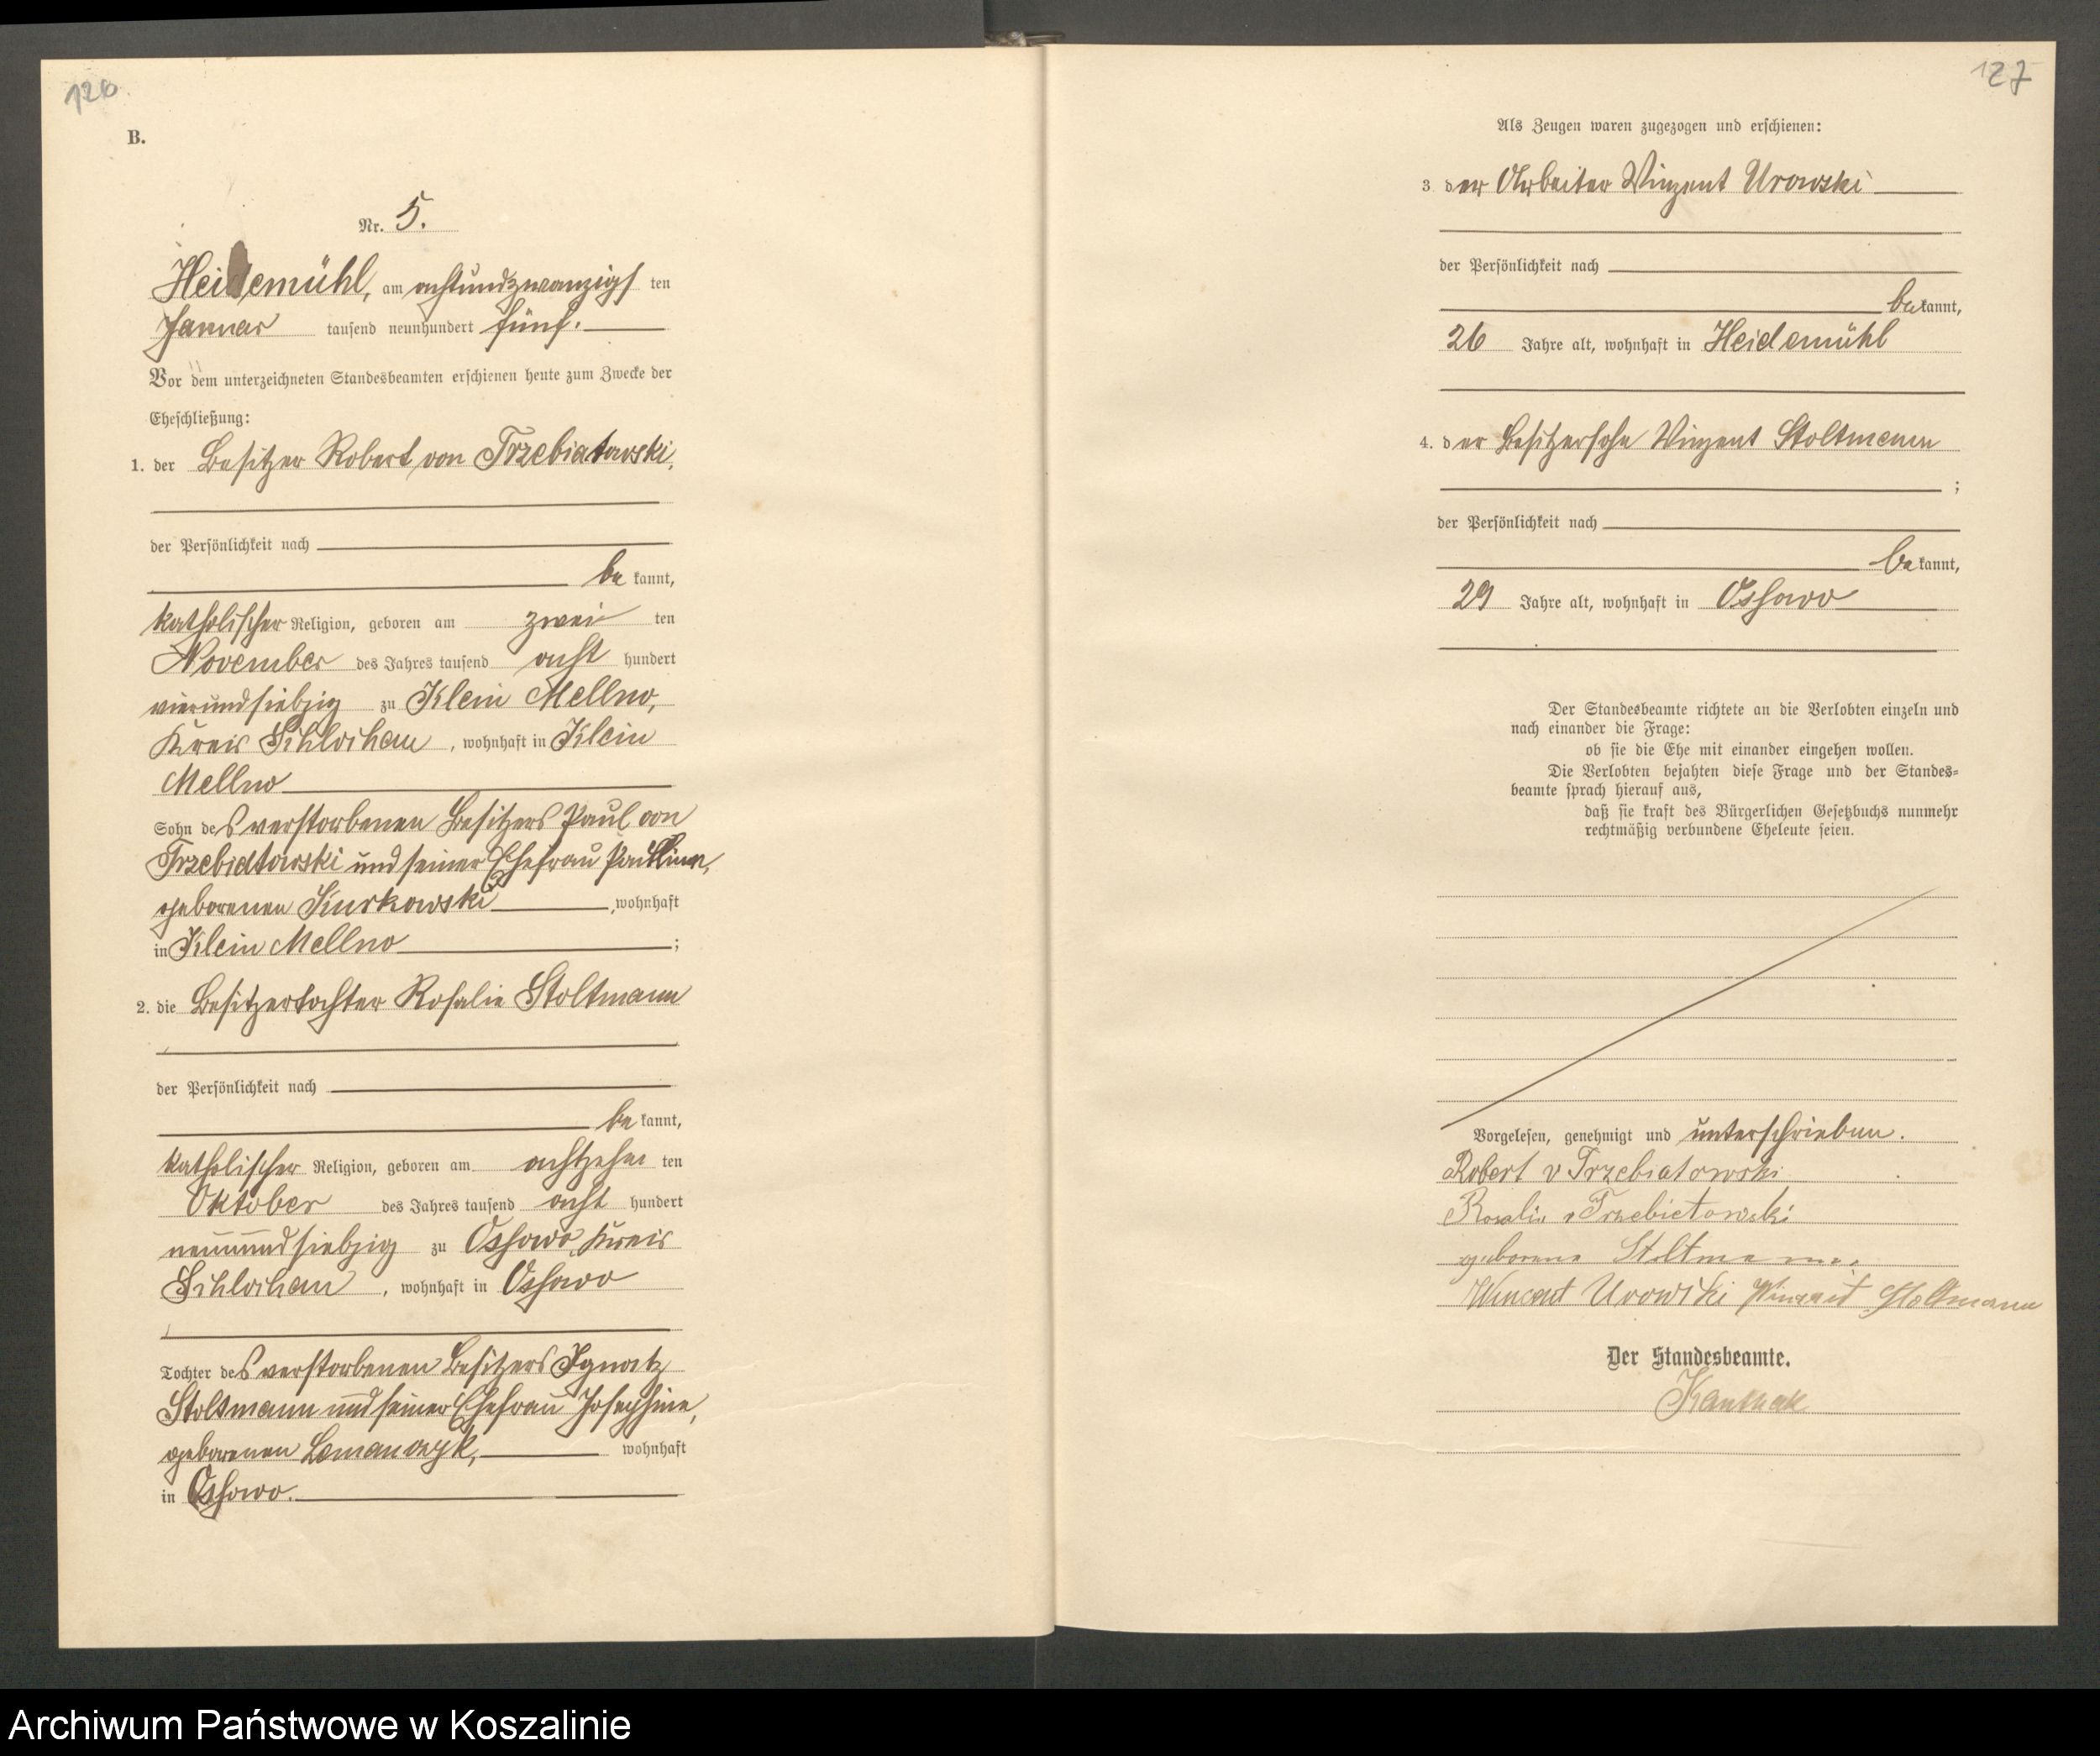 126
B.
Nr. 5.
Heidemühl, am achtundzwanzigsten
Januar tausend neunhundert fünf.
Vor dem unterzeichneten Standesbeamten erschienen heute zum Zwecke der
Eheschließung:
1. der Besitzer Robert von Trzebiatowski,
der Persönlichkeit nach
be kannt,
katholischer Religion, geboren am zwei ten
November des Jahres tausend acht hundert
vierundsiebzig zu Klein Mellno,
Kreis Schlochau, wohnhaft in Klein
Mellno
Sohn des verstorbenen Besitzers Paul von
Trzebiatowski und seiner Ehefrau Pauline,
geborenen Kurkowski, wohnhaft
in Klein Mellno ;
2. die Besitzertochter Rosalie Stoltmann
der Persönlichkeit nach
be kannt,
katholischer Religion, geboren am achtzehn ten
Oktober des Jahres tausend acht hundert
neunundsiebzig zu Ossowo, Kreis
Schlochau, wohnhaft in Ossowo
Tochter des verstorbenen Besitzers Ignatz
Stoltmann und seiner Ehefrau Josephine,
geborenen Lemanczyk, wohnhaft
in Ossowo.
127
Als Zeugen waren zugezogen und erschienen:
3. der Arbeiter Vinzent Urowski
der Persönlichkeit nach
be kannt,
26 Jahre alt, wohnhaft in Heidemühl
4. der Besitzersohn Vinzent Stoltmann
;
der Persönlichkeit nach
be kannt,
29 Jahre alt, wohnhaft in Ossowo
Der Standesbeamte richtete an die Verlobten einzeln und
nach einander die Frage:
ob sie die Ehe mit einander eingehen wollen.
Die Verlobten bejahten diese Frage und der Standes=
beamte sprach hierauf aus,
daß sie kraft des Bürgerlichen Gesetzbuchs nunmehr
rechtmäßig verbundene Eheleute seien.
Vorgelesen, genehmigt und unterschrieben.
Robert v Trzebiatowski
Rosalie v Trzebietowski
geborene Stoltmann.
Wincent Urowski Vinzent Stoltmann
Der Standesbeamte.
Archiwum Państwowe w Koszalinie